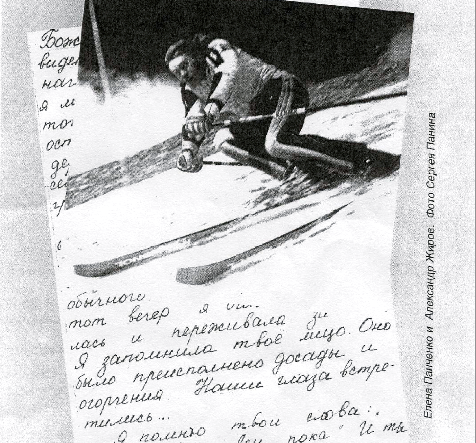 Бож
виде
наг
я м
тот
ост
де
се
обычного
тот вечер я
лась и переживала за
Я запомнила твоё лицо. Оно
было преисполнено досады и
огорчения. Наши глаза встре-
тились...
Я помню твои слова:
пока" И ты
Елена Панченко и Александр Жиров. Фото Сергея Панина